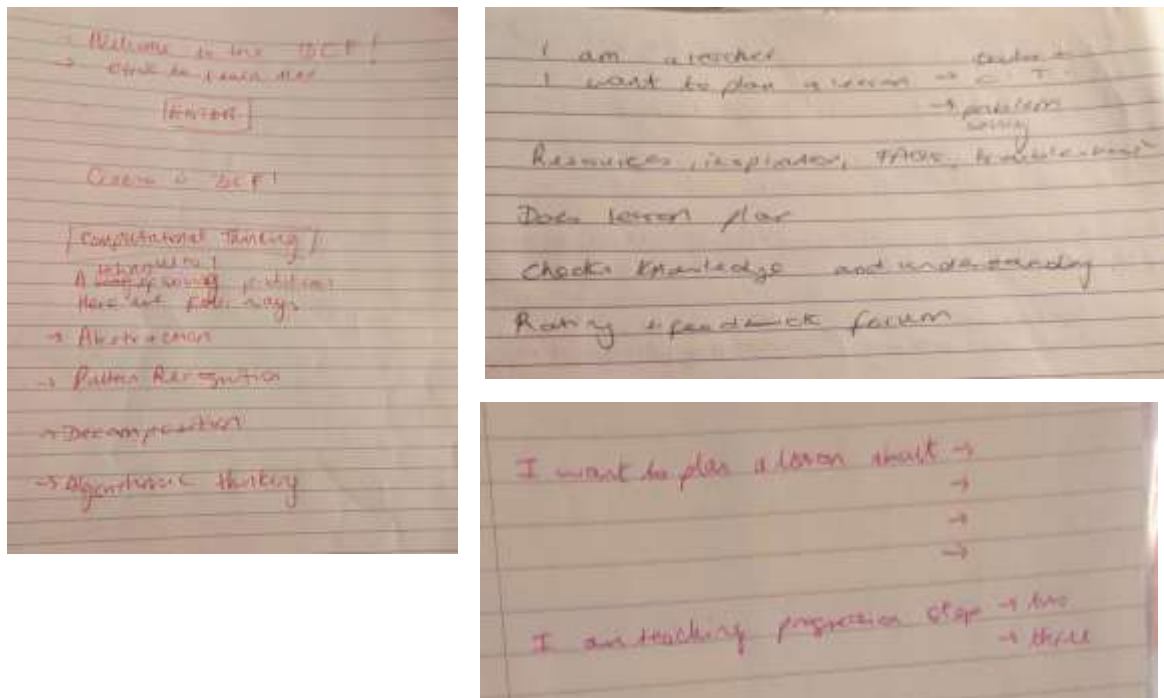 Welcome to the DCF!
→ Click to learn more
[ENTER]
DCF!
Computational Thinking
A problem
Here are four ways
→ Abstraction
→ Pattern Recognition
→ Decomposition
→ Algorithmic thinking
I am a teacher
I want to plan a lesson → C.T.
→ problem
solving
Resources, inspiration, FAQs,
Does lesson plan
Checks knowledge and understanding
Rating + feedback forum
I want to plan a lesson about →
→
→
→
I am teaching progression step → two
→ three